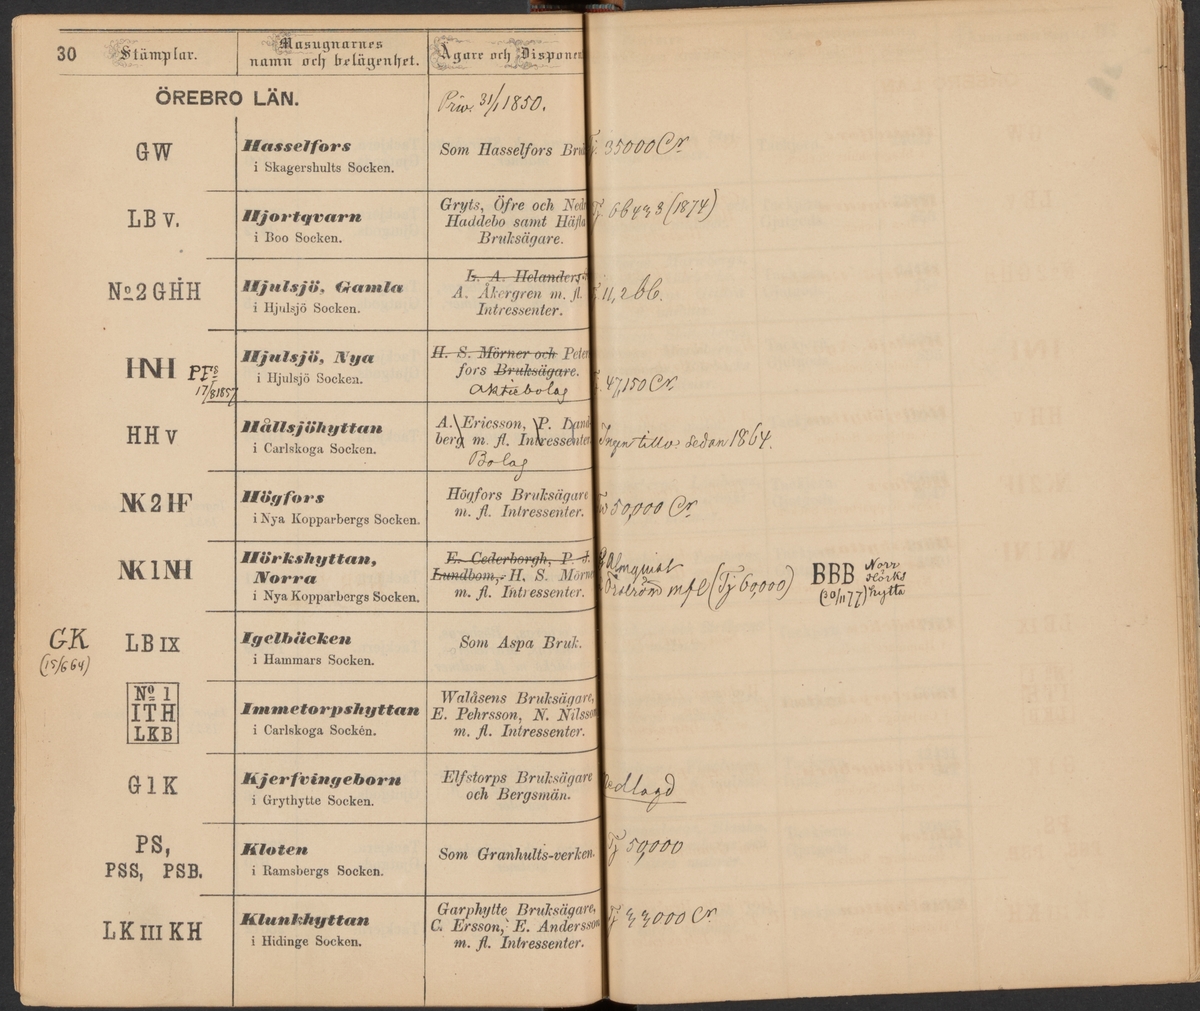 30
Stämplar.
Masugnarnes
namn och belägenhet.
Ägare och Disponen
ÖREBRO LÄN.
Priv. 31/1 1850.
GW
Hasselfors
i Skagershults Socken.
Som Hasselfors Bruk
35000 Cr
LB V.
Hjortqvarn
i Boo Socken.
Gryts, Öfre och Nedr
Haddebo samt Häfla
Bruksägare.
(1874)
No 2 GHH
Hjulsjö, Gamla
i Hjulsjö Socken.
L. A. Helanders
A. Åkergren m. fl.
Intressenter.
11,266.
HNH
PFs
17/8 1857
Hjulsjö, Nya
i Hjulsjö Socken.
H. S. Mörner och Peter
fors Bruksägare.
Aktiebolag
47,150 Cr.
HH V
Hållsjöhyttan
i Carlskoga Socken.
A. Ericsson, P. Land
berg m. fl. Intressenter
Bolag
Ingen tillv. sedan 1864.
NK 2 HF
Högfors
i Nya Kopparbergs Socken.
Högfors Bruksägare
m. fl. Intressenter.
50,000 Cr.
NK 1 NH
Hörkshyttan,
Norra
i Nya Kopparbergs Socken.
E. Cederborgh, P. J.
Lundbom, H. S. Mörne
m. fl. Intressenter.
Almquist
mfl (Tj 60,000)
BBB
(20/11 77)
Norr
Hörks
hytta
GK
(15/6 64)
LB IX
Igelbäcken
i Hammars Socken.
Som Aspa Bruk.
No 1
ITH
LKB
Immetorpshyttan
i Carlskoga Socken.
Walåsens Bruksägare,
E. Pehrsson, N. Nilsson
m. fl. Intressenter.
G 1 K
Kjerfvingeborn
i Grythytte Socken.
Elfstorps Bruksägare
och Bergsmän.
Nedlagd
PS,
PSS, PSB.
Kloten
i Ramsbergs Socken.
Som Granhults-verken.
Tj 50,000
LK III KH
Klunkhyttan
i Hidinge Socken.
Garphytte Bruksägare,
C. Ersson, E. Andersson
m. fl. Intressenter.
Tj 33000 Cr